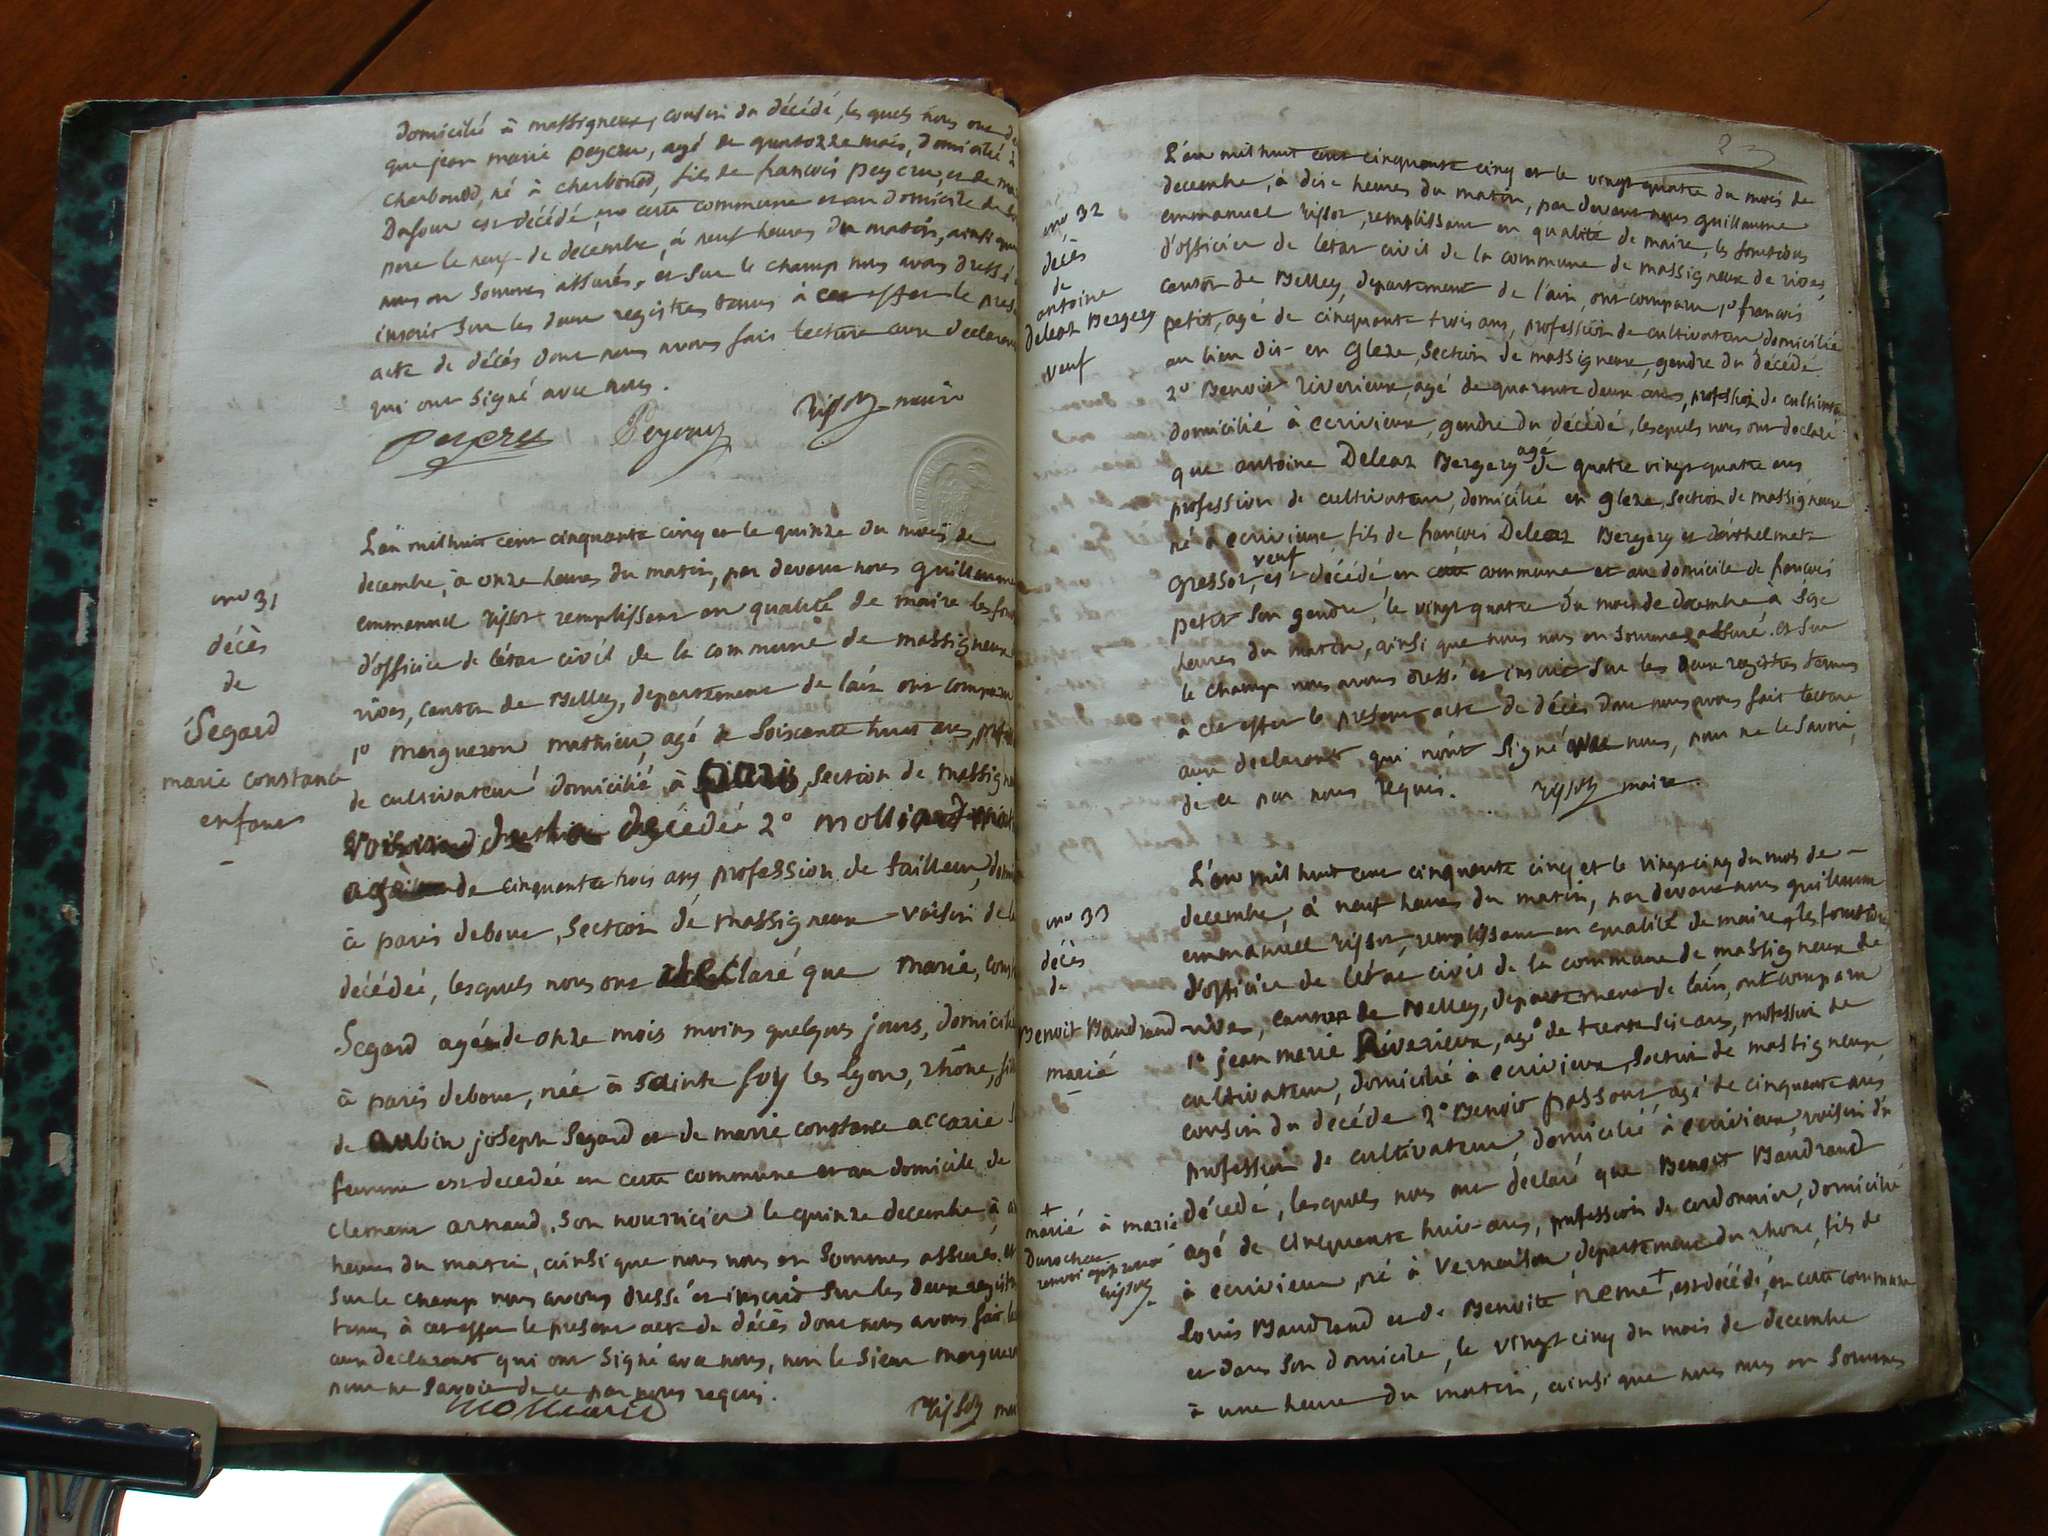 domicilié à massigneux, cousin du décédé, lesquels nous ont
que jean marie peycru, agé de quatorze mois, domicilié à
charbonod, né à charbonod, fils de françois peycru, et de
Dufour est décédé, en cette commune et au domicile de
pere le neuf de decembre, à neuf heures du matin, ainsi que
nous en sommes assurés, et sur le champ nous avons dressé
inscrit sur les deux registres tenus à cet effet le
acte de décés dont nous avons fait lecture aux
qui ont signé avec nous.
peycru Peycru rissot maire
L'an mil huit cent cinquante cinq et le quinze du mois de
decembre, à onze heures du matin, par devant nous guillaume
emmanuel rissot remplissant en qualité de maire les
d'officier de l'état civil de la commune de massigneux
rives, canton de Belley, departement de l'ain ont comparu
1º morgueron mathieu, agé de soixante huit ans,
de cultivateur domicilié, à paris, section de
voisin de la décédée 2º molliard
agé de cinquante trois ans profession de tailleur,
à paris debout, section de massigneux voisin de
décédée, lesquels nous ont declaré que marie,
Segard agée de onze mois moins quelques jours, domiciliée
à paris debout, née à sainte foy les lyon, rhône,
de aubin joseph Segard et de marie constance accarie
femme est decedée en cette commune et au domicile de
clement arnaud, son nourricier le quinze decembre à
heures du matin, ainsi que nous nous en sommes assurés. et
sur le champ nous avons dressé et inscrit sur les deux
tenus à cet effet le present acte de décés dont nous avons fait
aux declarants qui ont signé avec nous, non le sieur
pour ne savoir de ce par nous requis.
molliard rissot
nº 31
décès
de
Segard
marie constance
enfant
23
L'an mil huit cent cinquante cinq et le vingt quatre du mois de
decembre, à dix heures du matin, par devant nous guillaume
emmanuel rissot, remplissant en qualité de maire, les fonctions
d'officier de l'état civil de la commune de massigneux de rives,
canton de Belley, departement de l'ain, ont comparu 1º françois
petit, agé de cinquante trois ans, profession de cultivateur domicilié
au lieu dit en gleze, section de massigneux, gendre du décédé
2º Benoit riverieux, agé de quarante deux ans, profession de cultivateur
domicilié à ecrivieux, gendre du décédé, lesquels nous ont declaré
que antoine Deleaz Bergery agé de quatre vingt quatre ans
profession de cultivateur, domicilié en gleze section de massigneux
né à ecrivieux fils de françois Deleaz Bergery et
gressot, veuf est décédé, en cette commune et au domicile de françois
petit son gendre, le vingt quatre du mois de decembre à six
heures du matin, ainsi que nous nous en sommes assuré. et sur
le champ nous avons dressé et inscrit sur les deux registres tenus
à cet effet le present acte de décés dont nous avons fait lecture
aux declarants qui n'ont signé avec nous, pour ne le savoir,
de ce par nous requis. rissot maire.
nº 32
décès
de
antoine
Deleaz Bergery
veuf
L'an mil huit cent cinquante cinq et le vingt cinq du mois de
decembre, à neuf heures du matin, par devant nous guillaume
emmanuel rissot, remplissant en qualité de maire les fonctions
d'officier de l'état civil de la commune de massigneux de
rives, canton de Belley, departement de l'ain, ont comparu
1º jean marie Riverieux, agé de trente six ans, profession de
cultivateur, domicilié à ecrivieux, section de massigneux,
cousin du décédé 2º Benoit passout agé de cinquante ans
profession de cultivateur, domicilié à ecrivieux, voisin du
décedé, lesquels nous ont declaré que Benoit Baudrand
agé de cinquante huit ans, profession de cordonnier, domicilié
à ecrivieux, né à vernaison departement du rhône, fils de
Louis Baudrand et de Benoite neme +, est décédé, en cette commune
et dans son domicile, le vingt cinq du mois de decembre
à une heure du matin, ainsi que nous nous en sommes
nº 33
décès
de
Benoit Baudrand
marié
+
marié à marie
Durochat
renvoi approuvé
rissot